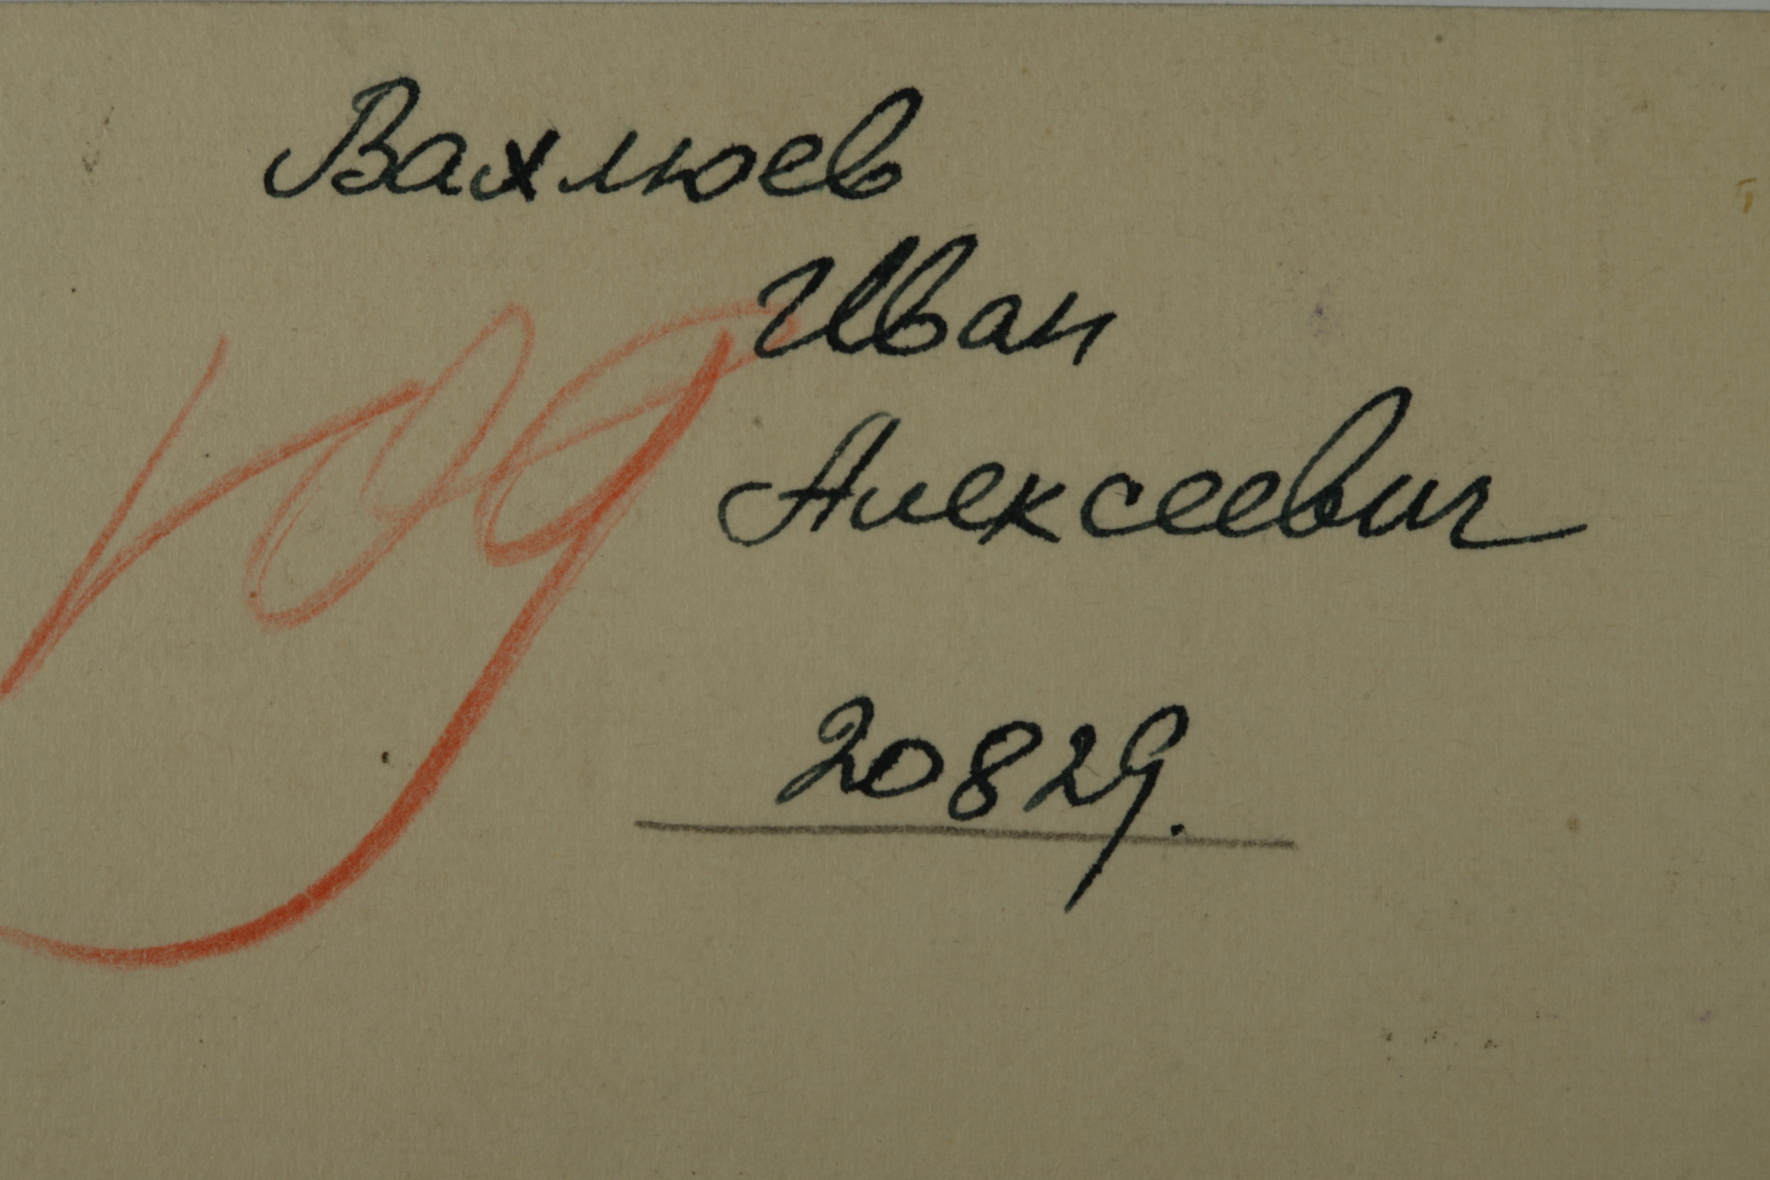 Вахлюев
Иван
Алексеевич
20829.